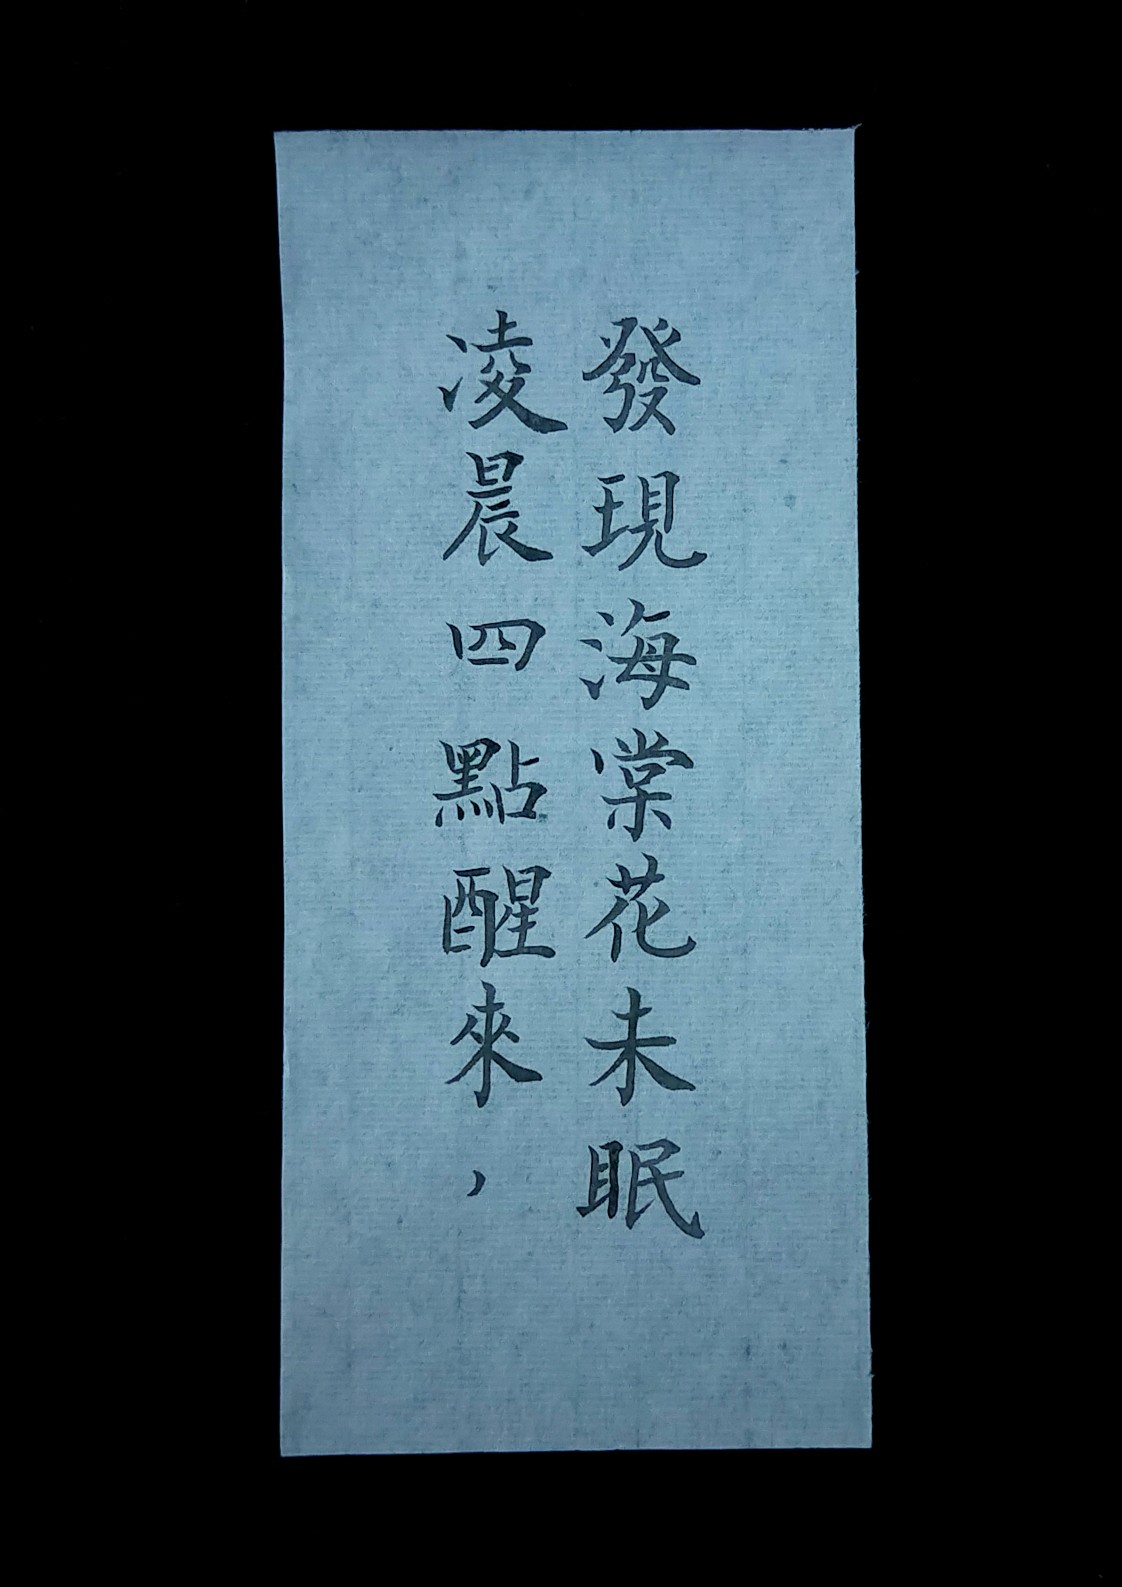 凌晨四點醒來，
發現海棠花未眠